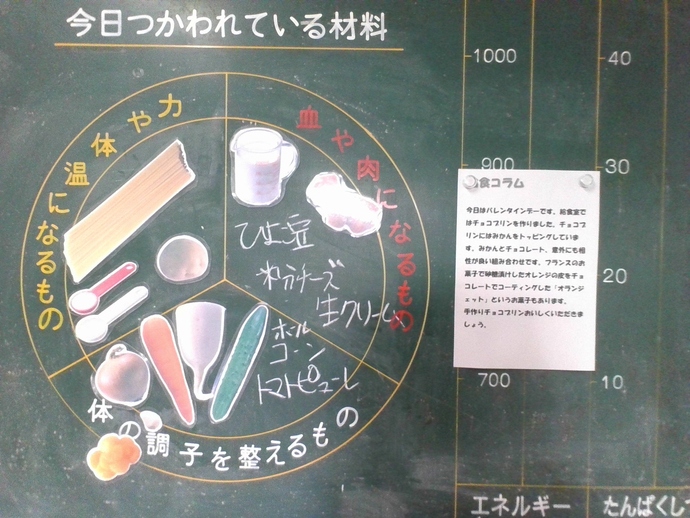 今日つかわれている材料
力や体温になるもの
血や肉になるもの
ひよこ豆
粉チーズ
生クリーム
ホール
コーン
トマトピューレ
体の調子を整えるもの
1000
900
700
40
30
20
10
エネルギー
たんぱくし
食コラム
今日はバレンタインデーです。給食室で
はチョコプリンを作りました。チョコプ
リンにはみかんをトッピングしていま
す。みかんとチョコレート、意外にも相
性が良い組み合わせです。フランスのお
菓子で砂糖漬けしたオレンジの皮をチョ
コレートでコーティングした「オランジ
ェット」というお菓子もあります。
手作りチョコプリンおいしくいただきま
しょう。